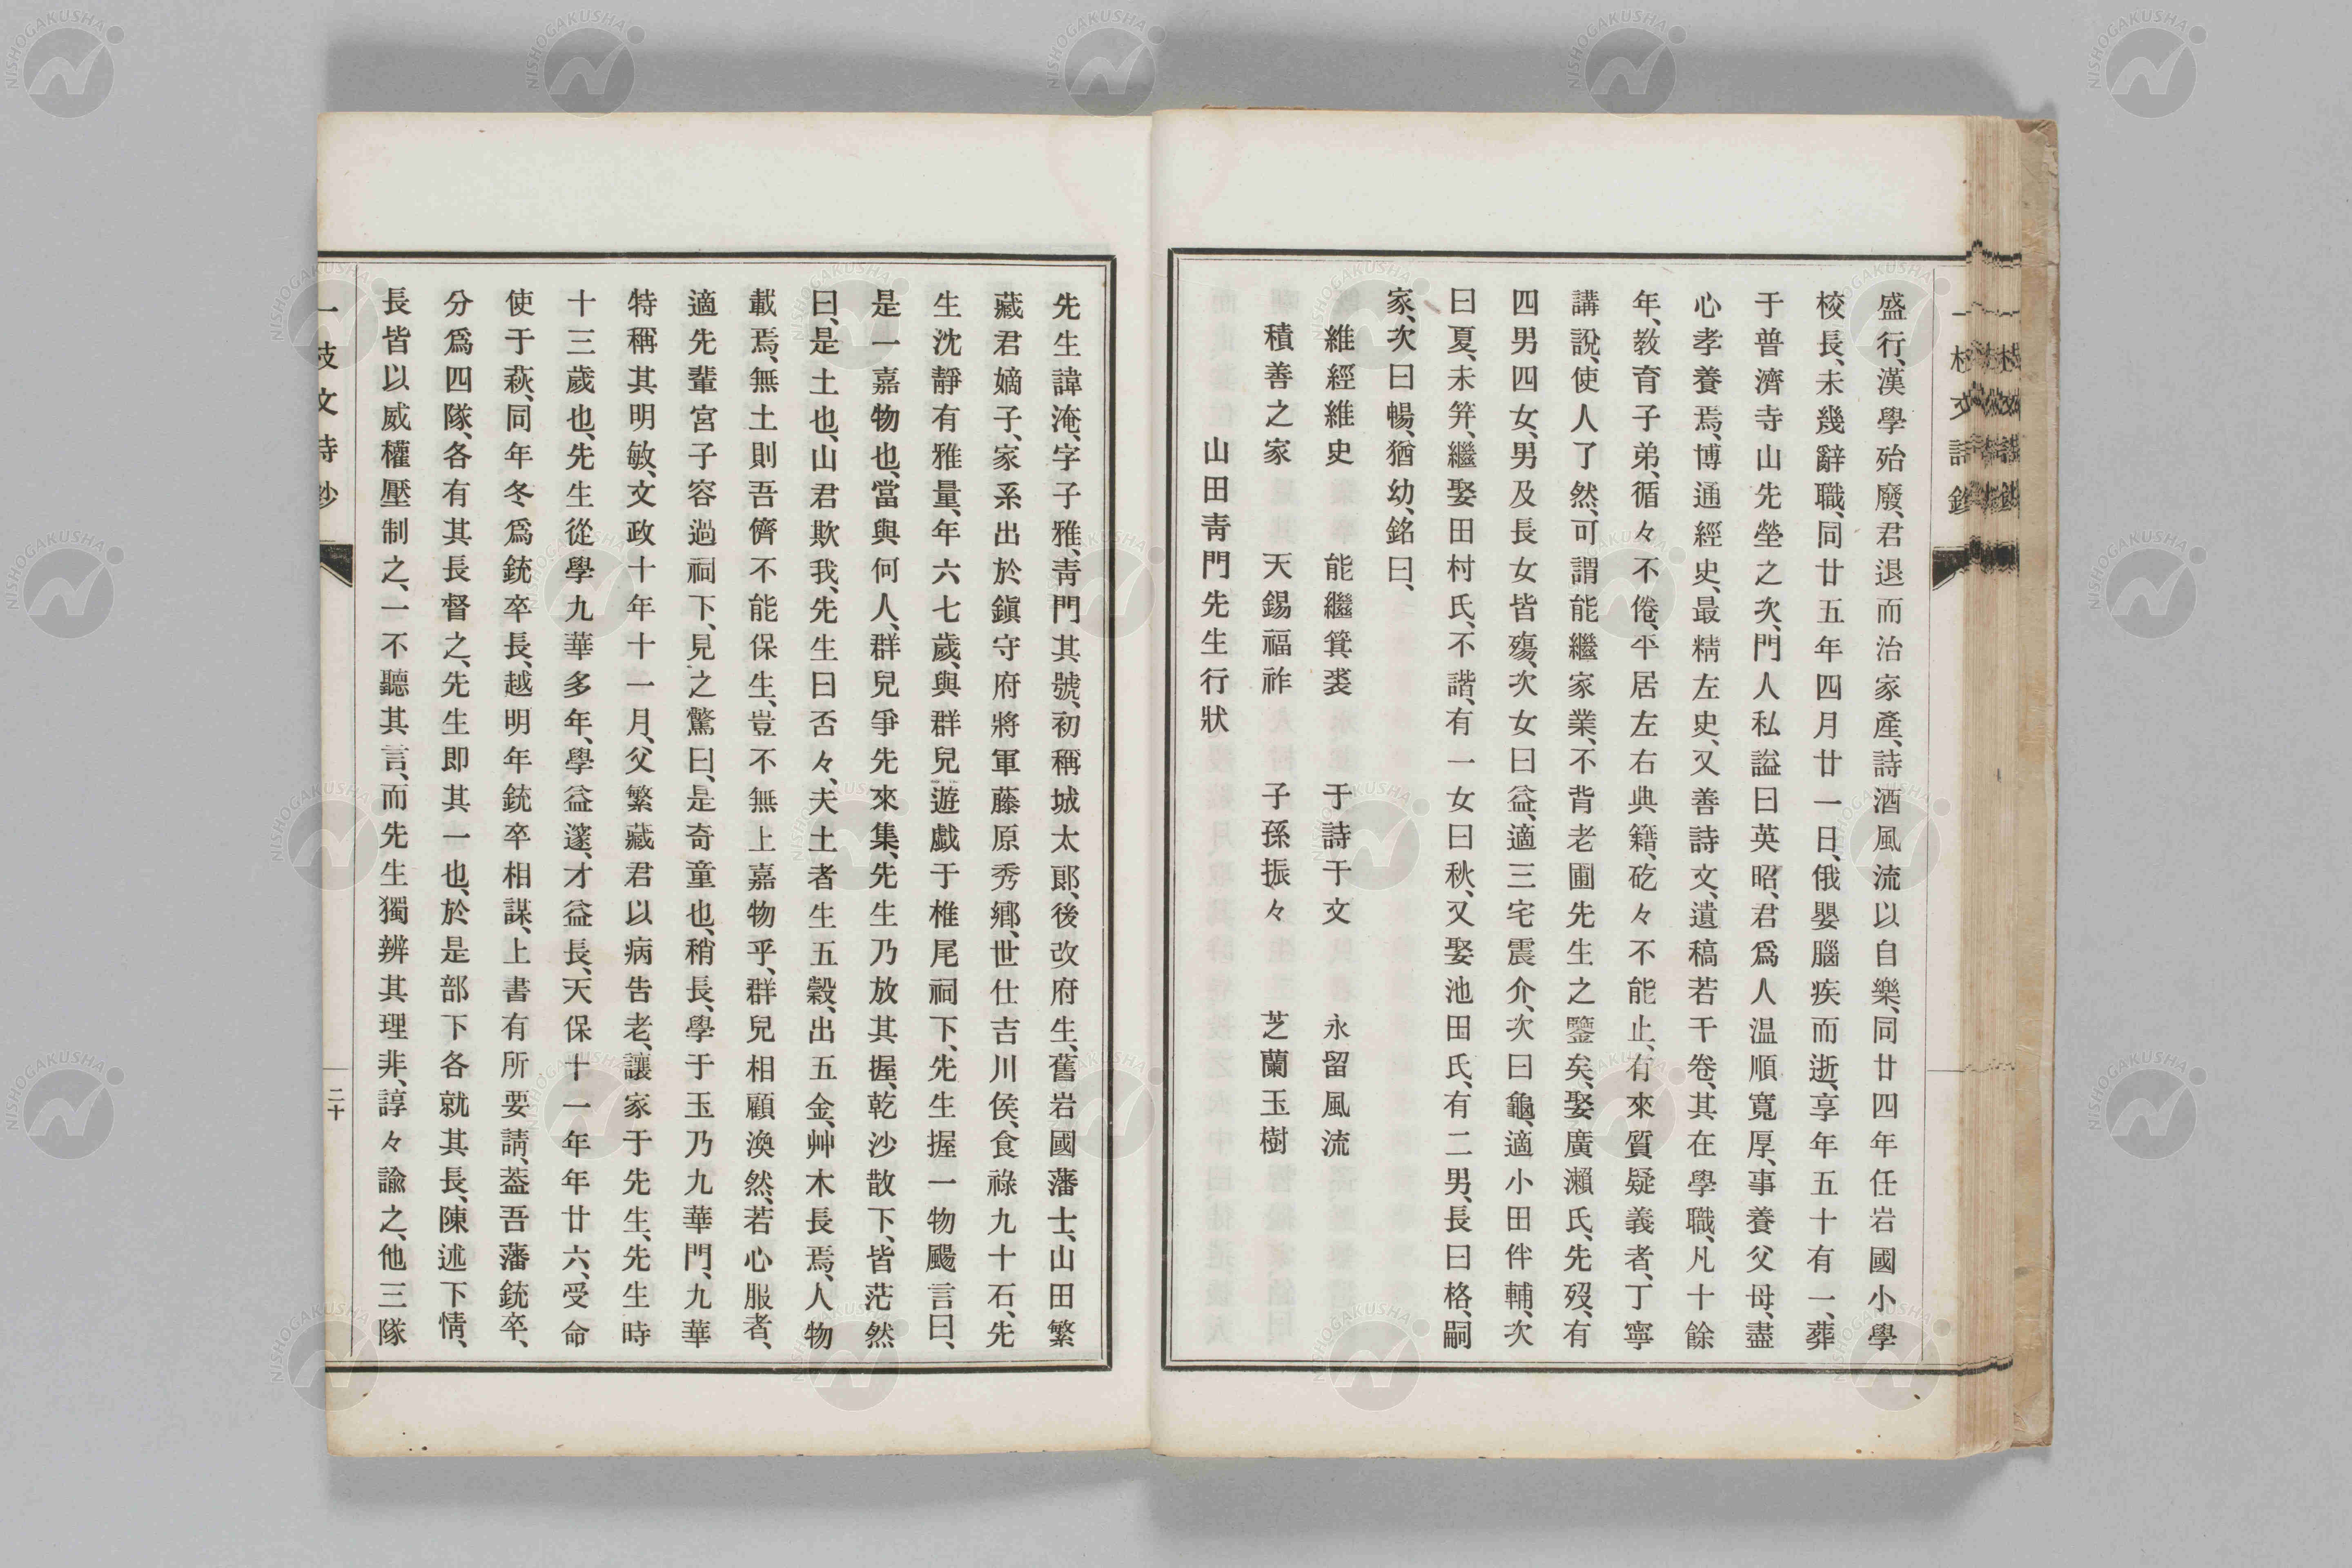 盛行、漢學殆廢、君退而治家產、詩酒風流以自樂、同廿四年任岩國小學
校長、未幾辭職、同廿五年四月廿一日、俄嬰腦疾而逝、享年五十有一、葬
于普濟寺山先塋之次、門人私謚曰英昭、君爲人温順寬厚、事養父母、盡
心孝養焉、博通經史、最精左史、又善詩文、遺稿若干卷、其在學職、凡十餘
年、教育子弟、循々不倦、平居左右典籍、矻々不能止、有來質疑義者、丁寧
講說、使人了然、可謂能繼家業、不背老圃先生之鑒矣、娶廣瀨氏、先歿、有
四男四女、男及長女皆殤、次女曰益、適三宅震介、次曰龜、適小田伴輔、次
曰夏、未笄、繼娶田村氏、不諧、有一女曰秋、又娶池田氏、有二男、長曰格、嗣
家、次曰暢、猶幼、銘曰、
維經維史 能繼箕裘 于詩于文 永留風流
積善之家 天錫福祚 子孫振々 芝蘭玉樹
山田靑門先生行狀
先生諱淹、字子雅、靑門其號、初稱城太郞、後改府生、舊岩國藩士、山田繁
藏君嫡子、家系出於鎭守府將軍藤原秀鄕、世仕吉川侯、食祿九十石、先
生沈靜有雅量、年六七歲、與群兒遊戲于椎尾祠下、先生握一物颺言曰、
是一嘉物也、當與何人、群兒爭先來集、先生乃放其握、乾沙散下、皆茫然
曰、是土也、山君欺我、先生曰否々、夫土者生五穀、出五金、艸木長焉、人物
載焉、無土則吾儕不能保生、豈不無上嘉物乎、群兒相顧渙然、若心服者、
適先輩宮子容過祠下、見之驚曰、是奇童也、稍長、學于玉乃九華門、九華
特稱其明敏、文政十年十一月、父繁藏君以病告老、讓家于先生、先生時
十三歲也、先生從學九華多年、學益邃、才益長、天保十一年年廿六、受命
使于萩、同年冬爲銃卒長、越明年銃卒相謀、上書有所要請、葢吾藩銃卒、
分爲四隊、各有其長督之、先生即其一也、於是部下各就其長、陳述下情、
長皆以威權壓制之、一不聽其言、而先生獨辨其理非、諄々諭之、他三隊
二十